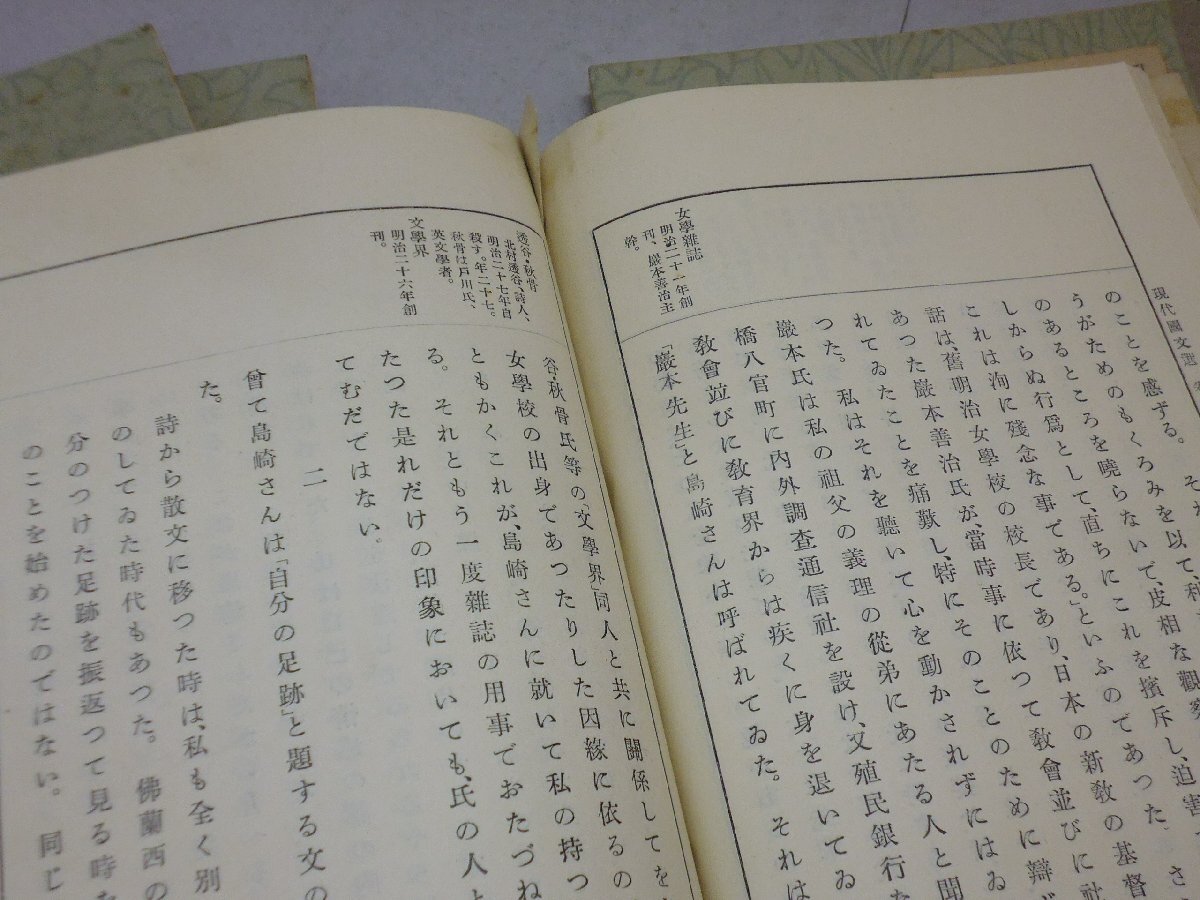 現代國文選
女學雜誌
明治二十一年創
刊、巖本善治主
幹。
のことを感ずる。
うがためのもくろみを以て、種
のあるところを曉らないで、皮相な觀察
しからぬ行爲として、直ちにこれを擯斥し、迫害
これは洵に殘念な事である。」といふのであつた。
話は、舊明治女學校の校長であり、日本の新敎の基督
あつた巖本善治氏が、當時事に依つて敎會並びに社
れてゐたことを痛歎し、特にそのことのために辯
つた。私はそれを聽いて心を動かされずにはゐ
巖本氏は私の祖父の義理の從弟にあたる人と聞
橋八官町に內外調査通信社を設け、又殖民銀行た
敎會並びに敎育界からは疾くに身を退いてゐ
「巖本先生」と島崎さんは呼ばれてゐた。それは
透谷・秋骨
北村透谷、詩人、
明治二十七年自
殺す。年二十七。
秋骨は戶川氏、
英文學者。
文學界
明治二十六年創
刊。
谷・秋骨氏等の「文學界」同人と共に關係してを
女學校の出身であつたりした因緣に依るの
ともかくこれが、島崎さんに就いて私の持つ
る。それともう一度雜誌の用事でおたづね
たつた是れだけの印象においても、氏の人と
てむだではない。
二
曾て島崎さんは「自分の足跡」と題する文の
た。
詩から散文に移つた時は、私も全く別
のしてゐた時代もあつた。佛蘭西の
分のつけた足跡を振返つて見る時た
のことを始めたのではない。同じ